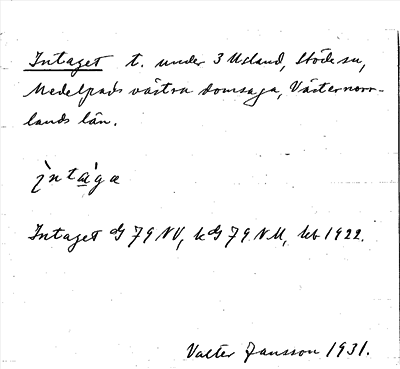 Intaget t. under 3 Usland, Stöde sn,
Medelpads västra domsaga, Västernorr-
lands län.
ìntᶏ̀gɶ
Intaget G 79 NV, kG 79 NM, kb 1922.
Valter Jansson 1931.